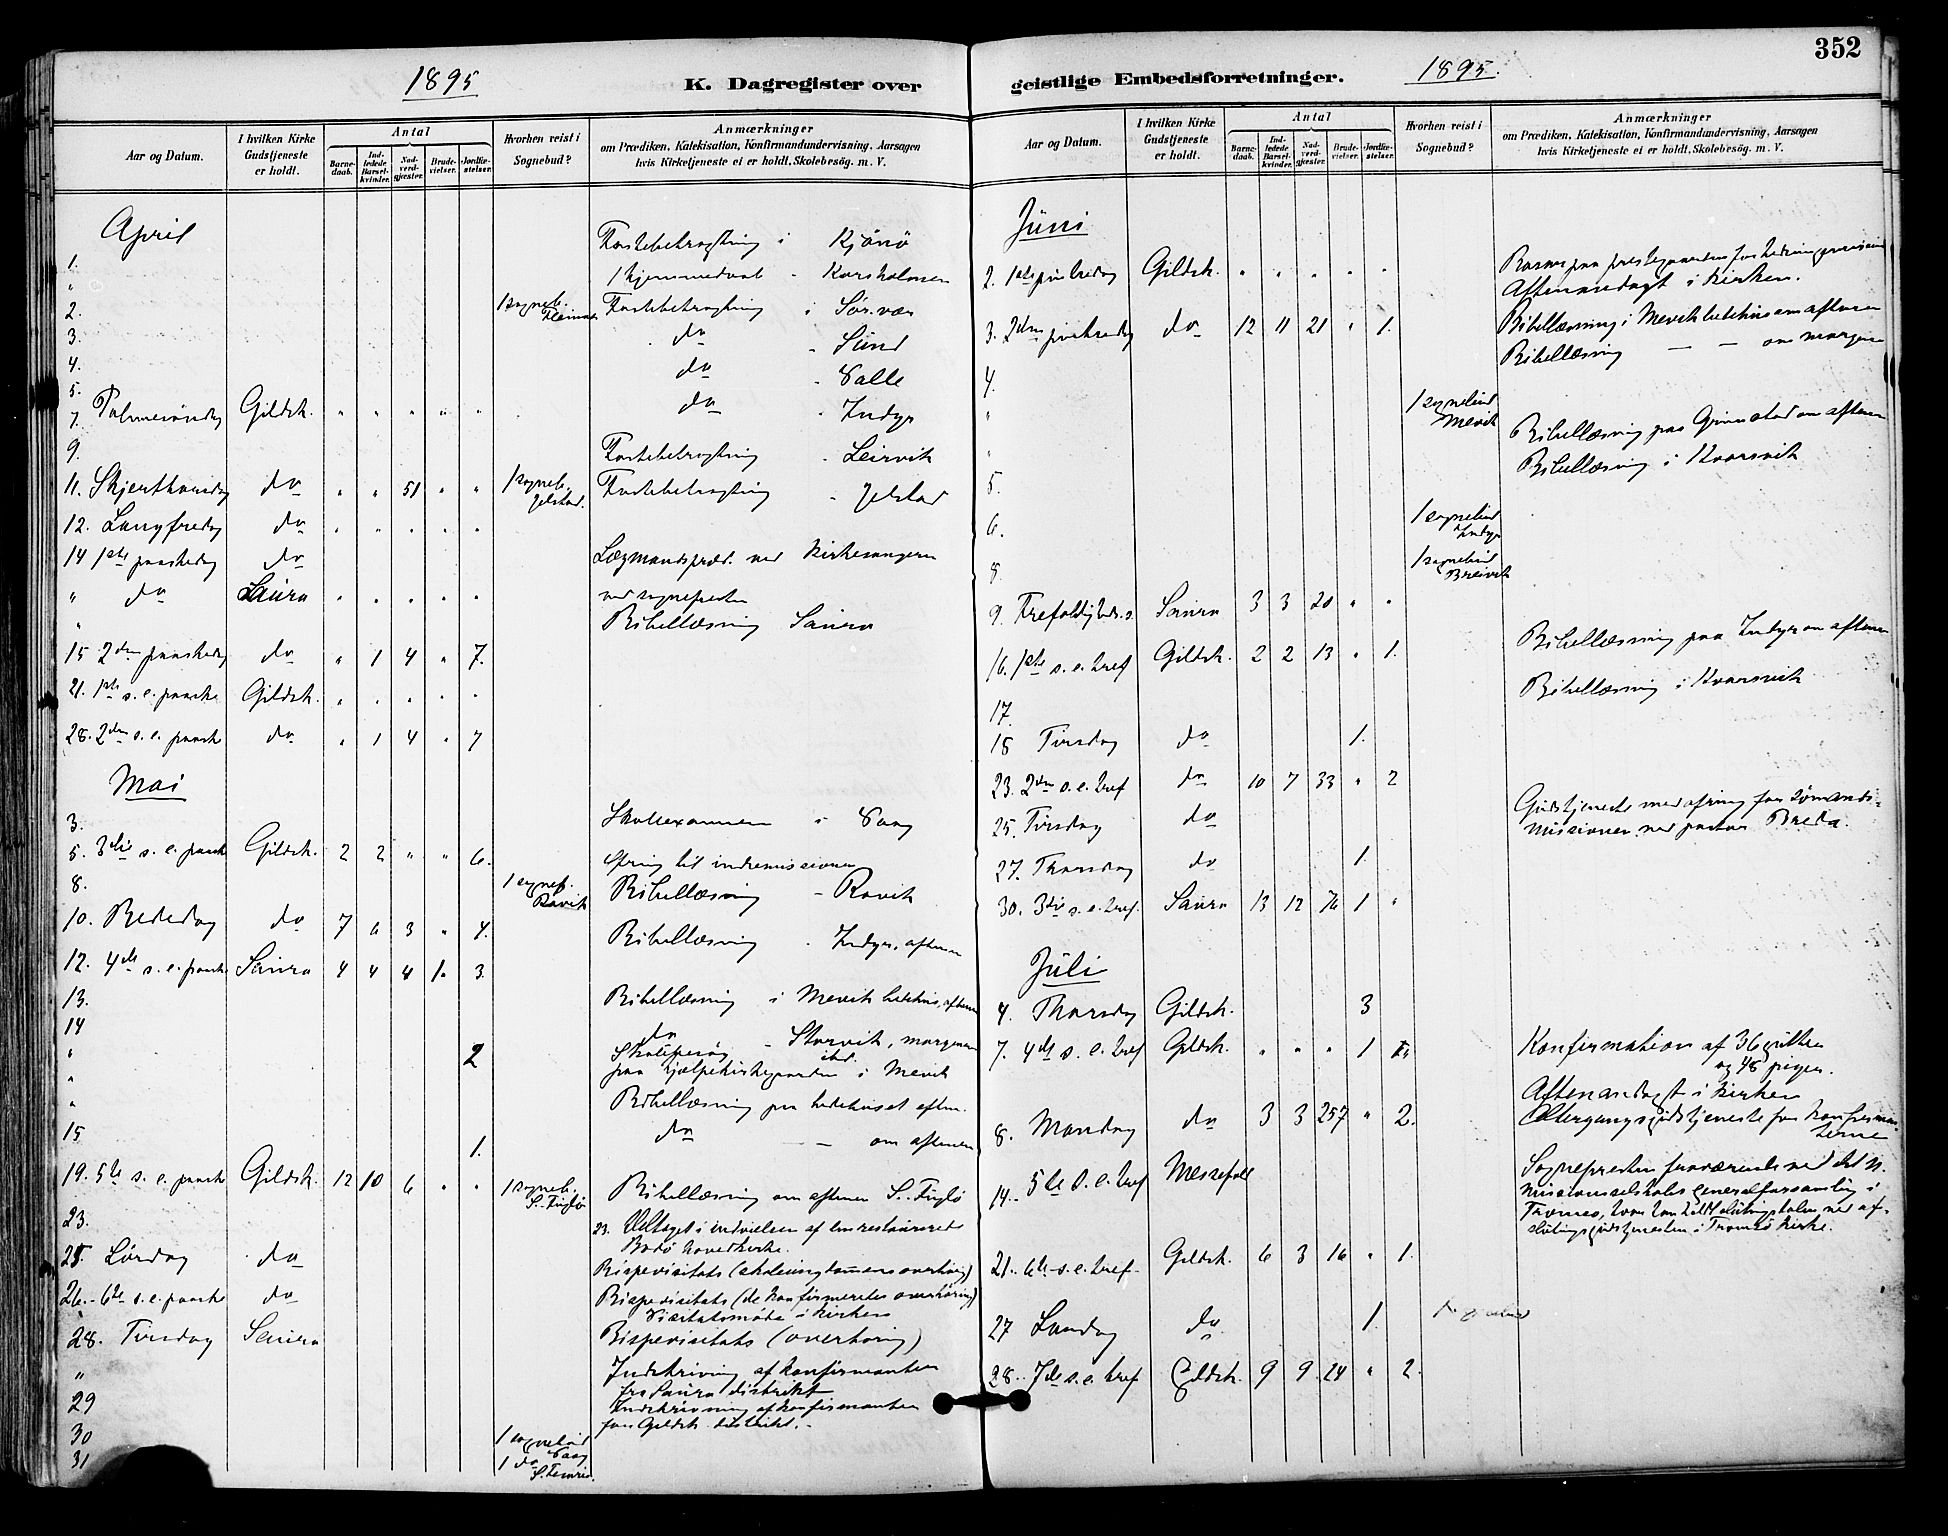 352
1895
K. Dagregister over
Aar og Datum.
I hvilken Kirke Gudstjeneste er holdt.
Antal
Barne-daab.
Ind-ledede Barsel-kvinder.
Nad-verd-gjæster.
Brude-vielser.
Jordfæ-stelser.
Hvorhen reist i Sognebud?
Anmærkninger
om Prædiken, Katekisation, Konfirmandundervisning, Aarsagen
hvis Kirketjeneste ei er holdt, Skolebesøg. m. V.
April
Fastebetragtning i Kjønø
1.
" 1 hjemmedaab - Karsholmen
2. 1 sogneb. Fastebetragtning i Sørvær
3. do - Sund
4. do - Valle
5. do - Indyr
7. Palmesøndag Gildsk. " " " " "
9. Fastebetragtning - Leirvik
11. Skjærthorsdag do " " 51 " " 1 sogneb. Jelstad. Fastebetragtning - Jelstad
12. Langfredag do " " " " "
14 1ste paaskedag do Lægmandspræd. ved Kirkesangeren
" do Saura " " " " " ved sognepresten
" Bibellæsning Saura
15 2den paaskedag do " 1 4 " 7.
21. 1ste s. e. paaske Gildsk. " " " " "
28. 2den s. e. paaske do " 1 4 " 7
Mai
3. Skoleexamen i Vaag
5. 3die s. e. paaske Gildsk. 2 2 " " 6. Ofring til indremissionen
8. 1 sogneb. Ravik Bibellæsning - Ravik
10. Bededag do 7 6 3 " 4. Bibellæsning - Indyr, aftenen
12. 4de s. e. paaske Saura 4 4 4 1. 3.
13. Bibellæsning i Mevik bedehus, aftenen
14 do - Storvik, morgenen
" 2 Skolebesøg ibd.
" paa hjælpekirkegaarden i Mevik
" Bibellæsning paa bedehuset aften.
15 1. do - - om aftenen
19. 5te s. e. paaske Gildsk. 12 10 6 " " 1 sogneb. S. Fuglø Bibellæsning om aftenen S. Fuglø
23. 23. Deltaget i indvielsen af den restaurerede
Bodø hovedkirke.
25 Lørdag do Bispevisitats (skoleungdommens overhøring)
26. 6te s. e. paaske do Bispevisitats (de konfirmeredes overhøring)
Visitatsmøde i kirken
28. Tirsdag Saura Bispevisitats (overhøring)
" Indskrivning af konfirmanter
fra Saura distrikt
29 Indskrivning af konfirmanter
for Gildsk. distrikt.
30 1 sognebud Vaag
31 1 do
1895.
geistlige Embedsforretninger.
Aar og Datum.
I hvilken Kirke Gudstjeneste er holdt.
Antal
Barne-daab.
Ind-ledede Barsel-kvinder.
Nad-verd-gjæster.
Brude-vielser.
Jordfæ-stelser.
Hvorhen reist i Sognebud?
Anmærkninger
om Prædiken, Katekisation, Konfirmandundervisning, Aarsagen
hvis Kirketjeneste ei er holdt, Skolebesøg m. V.
Juni
2. 1ste pintsedag Gildsk. " " " " "
Aftenandagt i kirken.
3. 2den pintsedag do 12 11 21 " 1. Bibellæsning i Mevik bedehus om aftenen
4. Bibellæsning - - om morgenen
" 1 sognebud Mevik
" Bibellæsning paa Grimstad om aftenen
5. Bibellæsning i Kvarsvik
6. 1 sognebud Indyr
8. 1 sognebud Breivik
9. Trefoldigheds.s. Saura 3 3 20 " "
16. 1ste s. e. tref Gildsk. 2 2 13 " 1. Bibellæsning paa Indyr om aftenen
17. Bibellæsning i Kvarsvik
18 Tirsdag do 1.
23. 2den s. e. tref do 10 7 33 " 2
25. Tirsdag do Gudstjeneste med ofring for sømands-
missionen ved pastor Breda.
27. Thorsdag do 1.
30. 3die s. e. tref. Saura 13 12 76 1 "
Juli
4. Thorsdag Gildsk. 3
7. 4de s. e. tref Gildsk. " " " 1 Konfirmation af 36 gutter
og 48 piger.
Aftenandagt i kirken
8. Mandag do 3 3 257 " 2. Altergangsgudstjeneste for konfirman-
terne
14. 5te s. e. tref Messefald Sognepresten fraværende ved det n.
missionsselskabs generalforsamling i
Tromsø, hvor han holdt slutningstalen ved af-
slutningsgudstjenesten i Tromsø kirke.
21. 6te s. e. tref. Gildsk. 6 3 16 " 1.
27 Løndag do 1.
28. 7de s. e. tref Gildsk. 9 9 24 " 2.